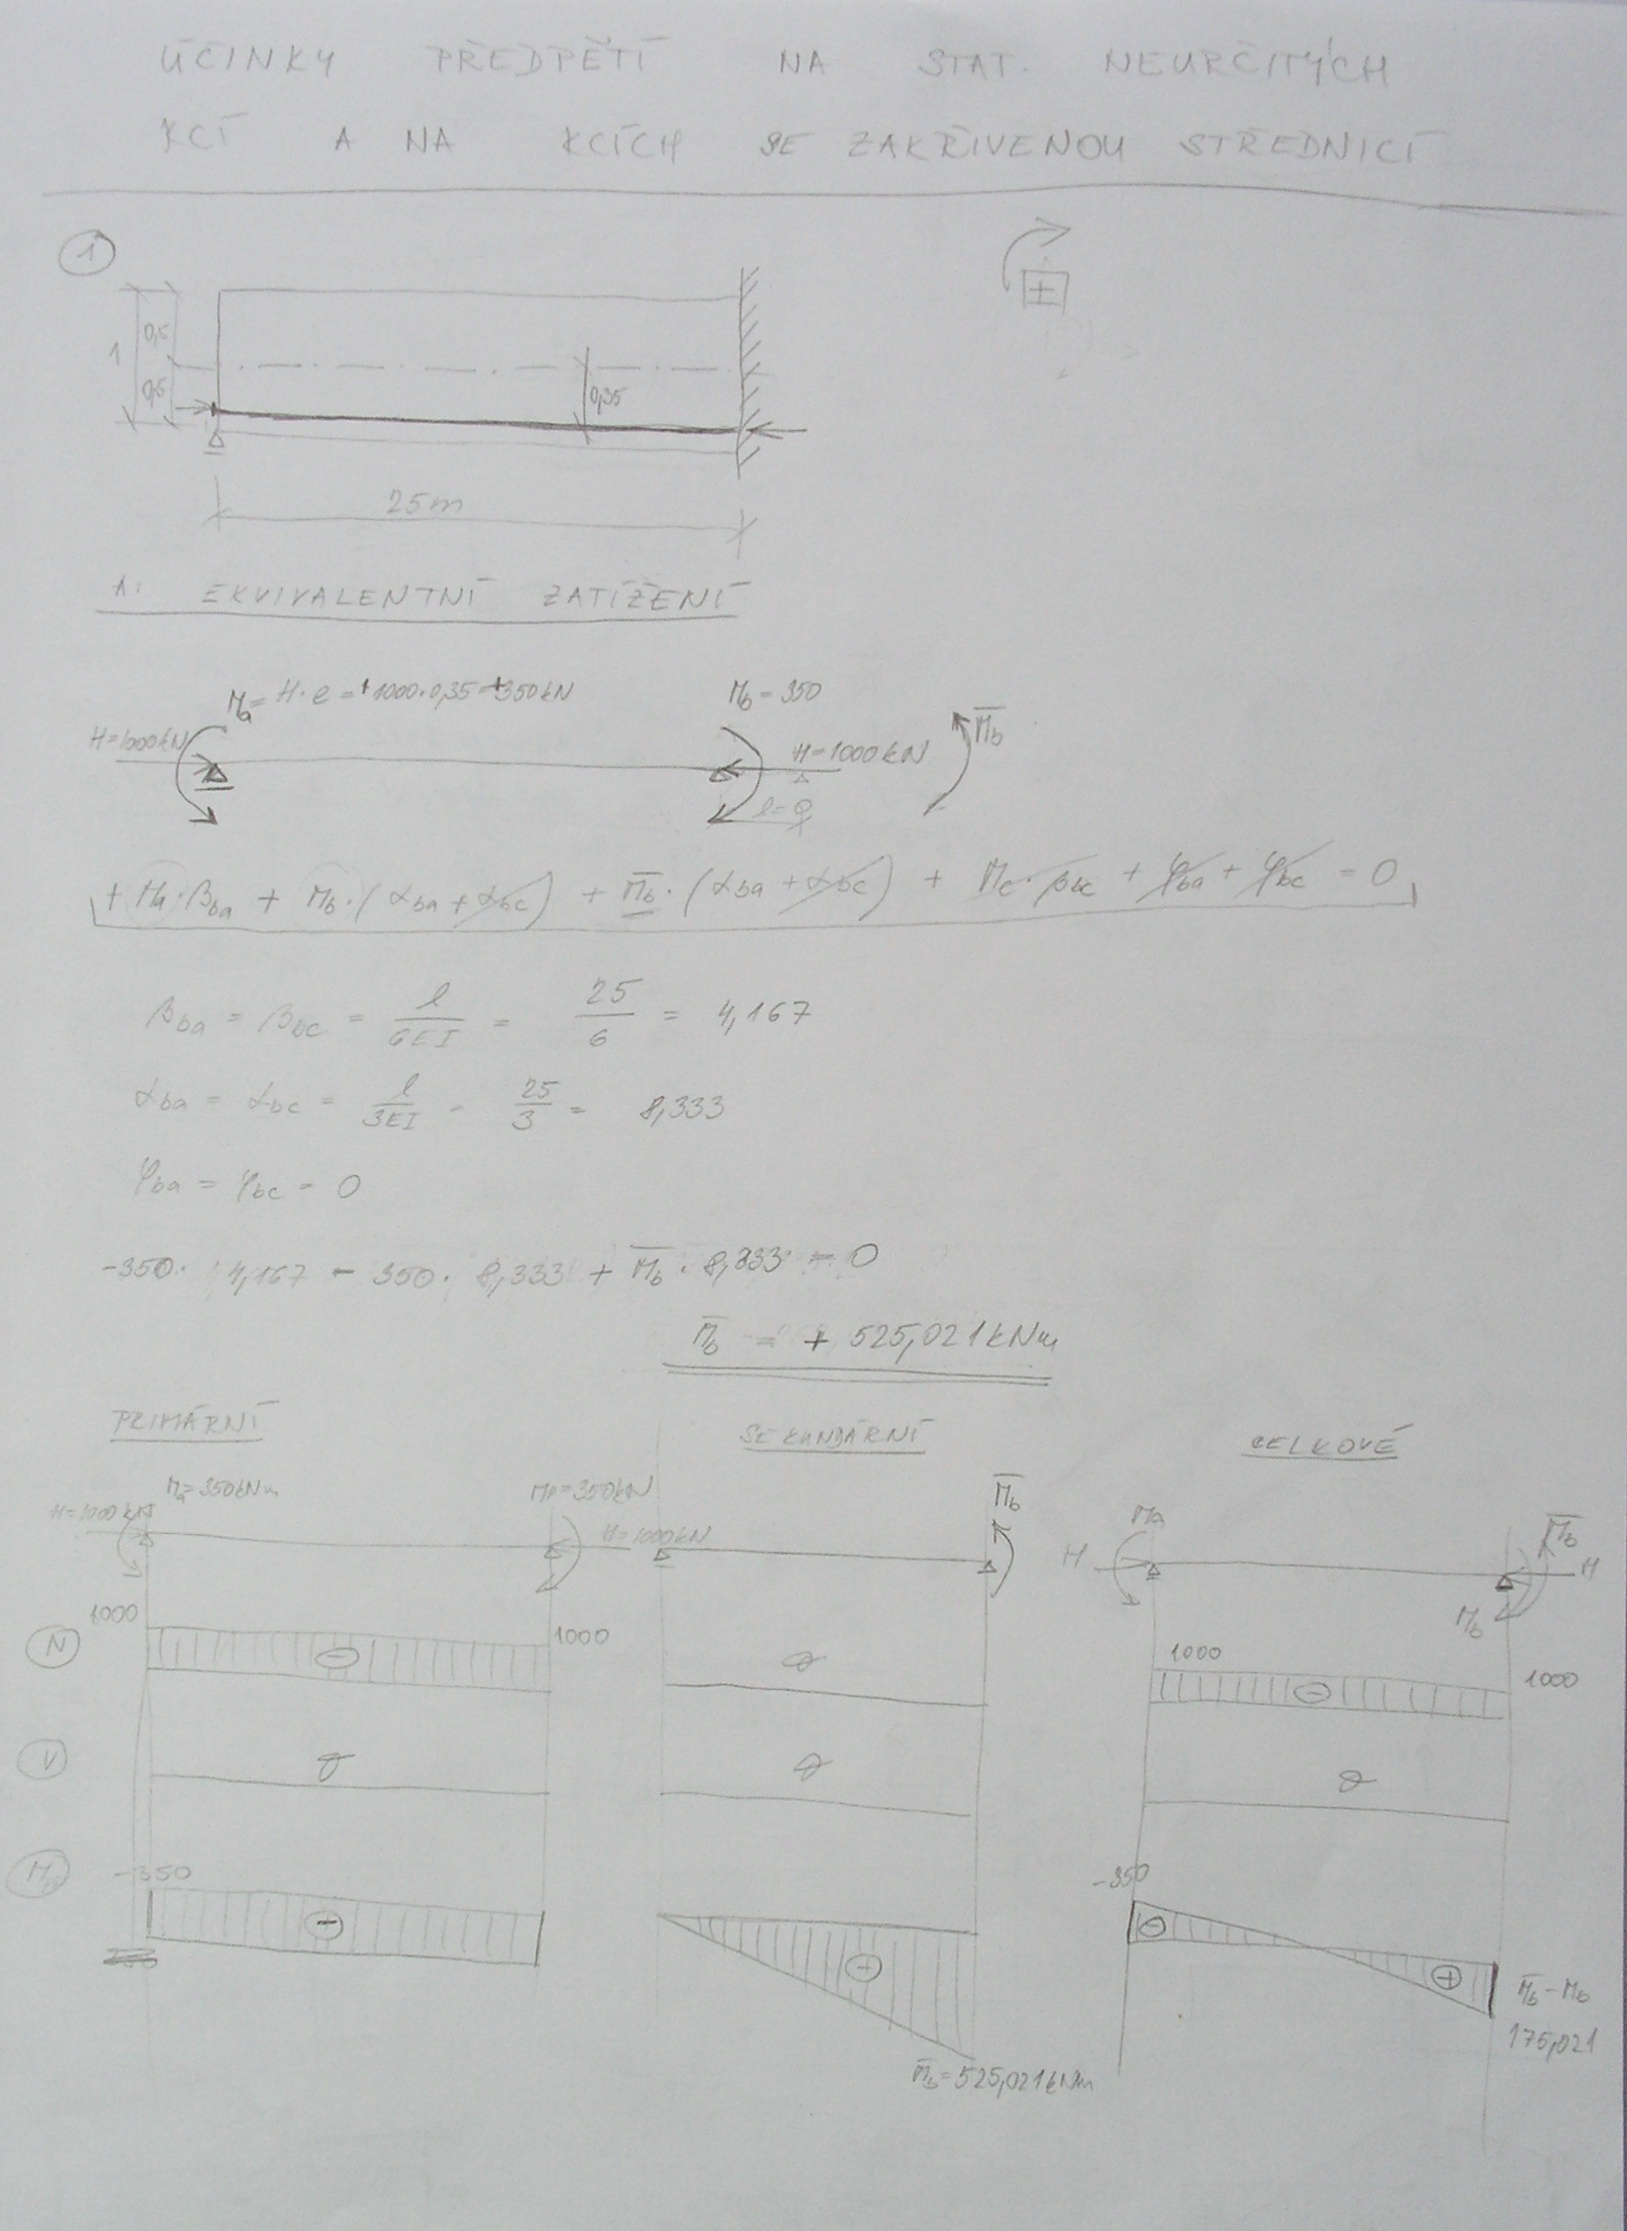 ÚČINKY PŘEDPĚTÍ NA STAT. NEURČITÝCH
KCÍ A NA KCÍCH SE ZAKŘIVENOU STŘEDNICÍ
1
+
1 0,5
0,5
0,35
25m
A: EKVIVALENTNÍ ZATÍŽENÍ
Ma = H·e = +1000·0,35 = +350kN
Mb = 350
H=1000kN
H=1000kN
M̅b
l=0
+ Ma·βba + Mb·(αba + αbc) + M̅b·(αba + αbc) + Mc·βbc + φba + φbc = 0
βba = βbc = l/6EI = 25/6 = 4,167
αba = αbc = l/3EI = 25/3 = 8,333
φba = φbc = 0
-350· 4,167 - 350· 8,333 + M̅b· 8,333 = 0
M̅b = + 525,021kNm
PRIMÁRNÍ SEKUNDÁRNÍ CELKOVÉ
H=1000kN Ma=350kNm Mb=350kN H=1000kN
M̅b
H Ma M̅b H
Mb
N 1000 - 1000 0 1000 - 1000
V 0 0 0
M -350 - + -350 - +
M̅b - Mb
175,021
M̅b=525,021kNm